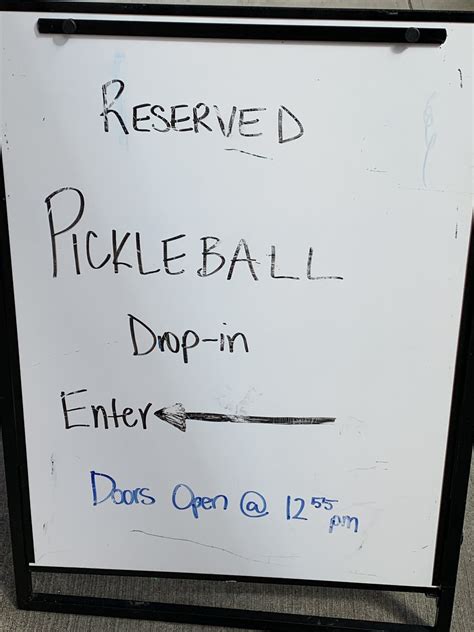 RESERVED
PICKLEBALL
Drop-in
Enter ←
Doors Open @ 12 55 pm